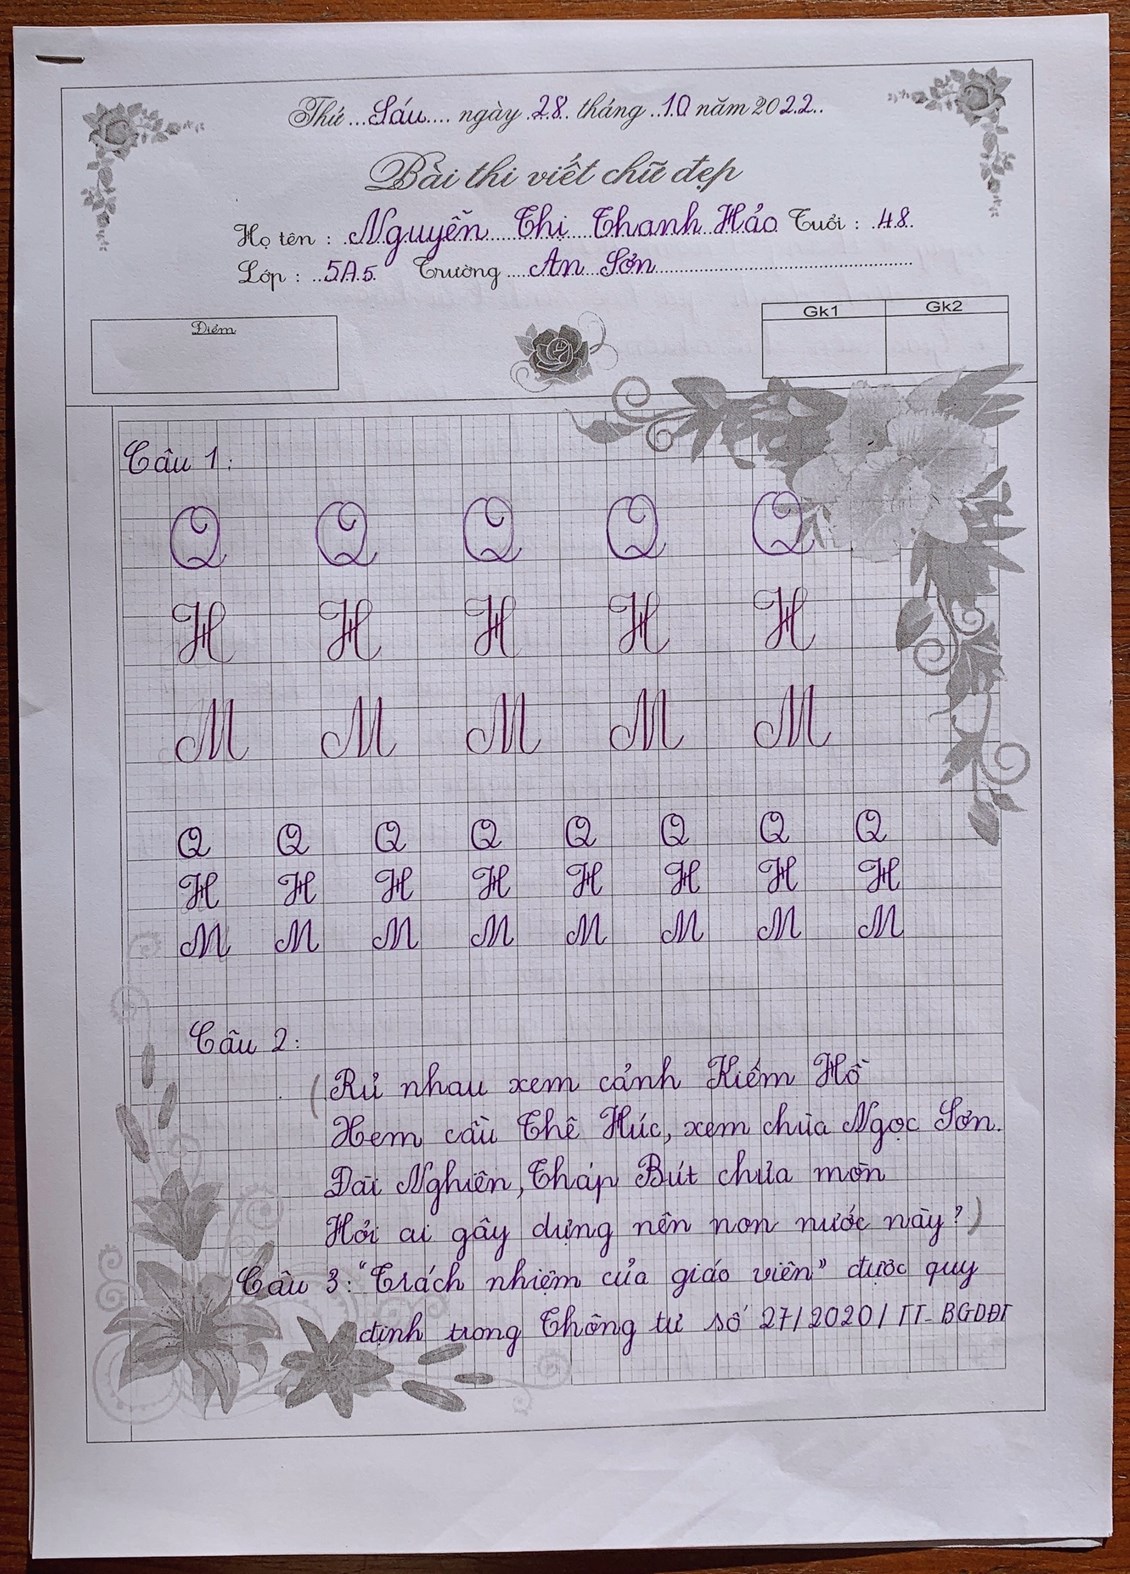 Thứ ... Sáu .... ngày .28.. tháng ..10 năm 2022..
Bài thi viết chữ đẹp
Họ tên : .Nguyễn Thị Thanh Hảo Tuổi : .48.
Lớp : ..5A5. Trường ... An Sơn
Điểm
Gk1 Gk2
Câu 1:
Q Q Q Q Q
H H H H H
M M M M M
Q Q Q Q Q Q Q Q
H H H H H H H H
M M M M M M M M
Câu 2:
(Rủ nhau xem cảnh Kiếm Hồ
Xem cầu Thê Húc, xem chùa Ngọc Sơn.
Đài Nghiên, Tháp Bút chưa mòn
Hỏi ai gây dựng nên non nước này?)
Câu 3: "Trách nhiệm của giáo viên" được quy
định trong Thông tư số 27/2020/TT-BGDĐT